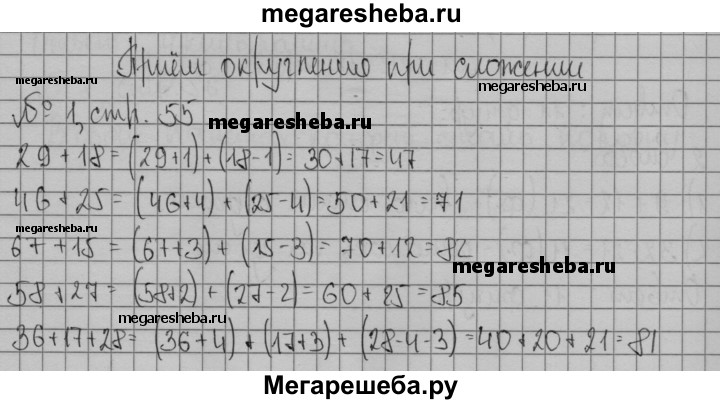 megaresheba.ru
Приём округления при сложении
megaresheba.ru
megaresheba.ru
№ 1, стр. 55
megaresheba.ru
29+18=(29+1)+(18-1)=30+17=47
46+25=(46+4)+(25-4)=50+21=71
megaresheba.ru
67+15=(67+3)+(15-3)=70+12=82
megaresheba.ru
58+27=(58+2)+(27-2)=60+25=85
megaresheba.ru
36+17+28=(36+4)+(17+3)+(28-4-3)=40+20+21=81
Мегарешеба.ру